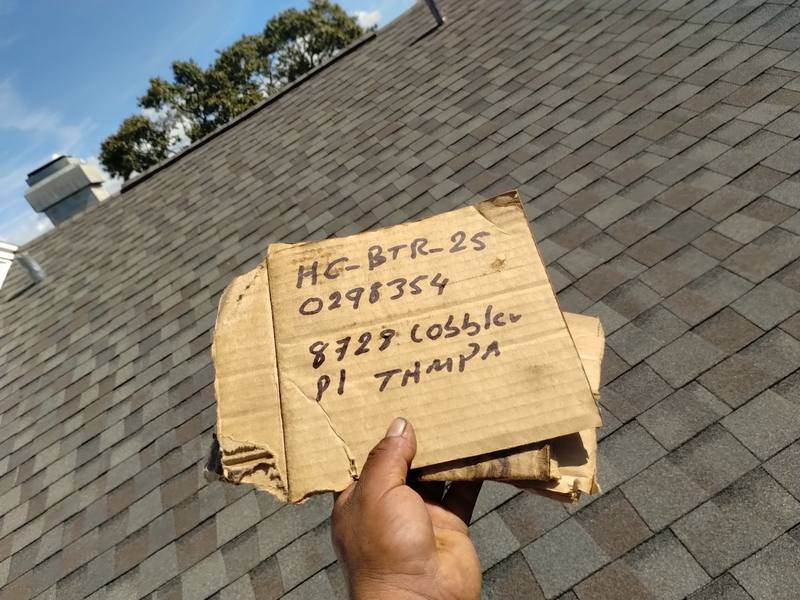 HC-BTR-25
0298354
8729 Cobbler
Pl TAMPA